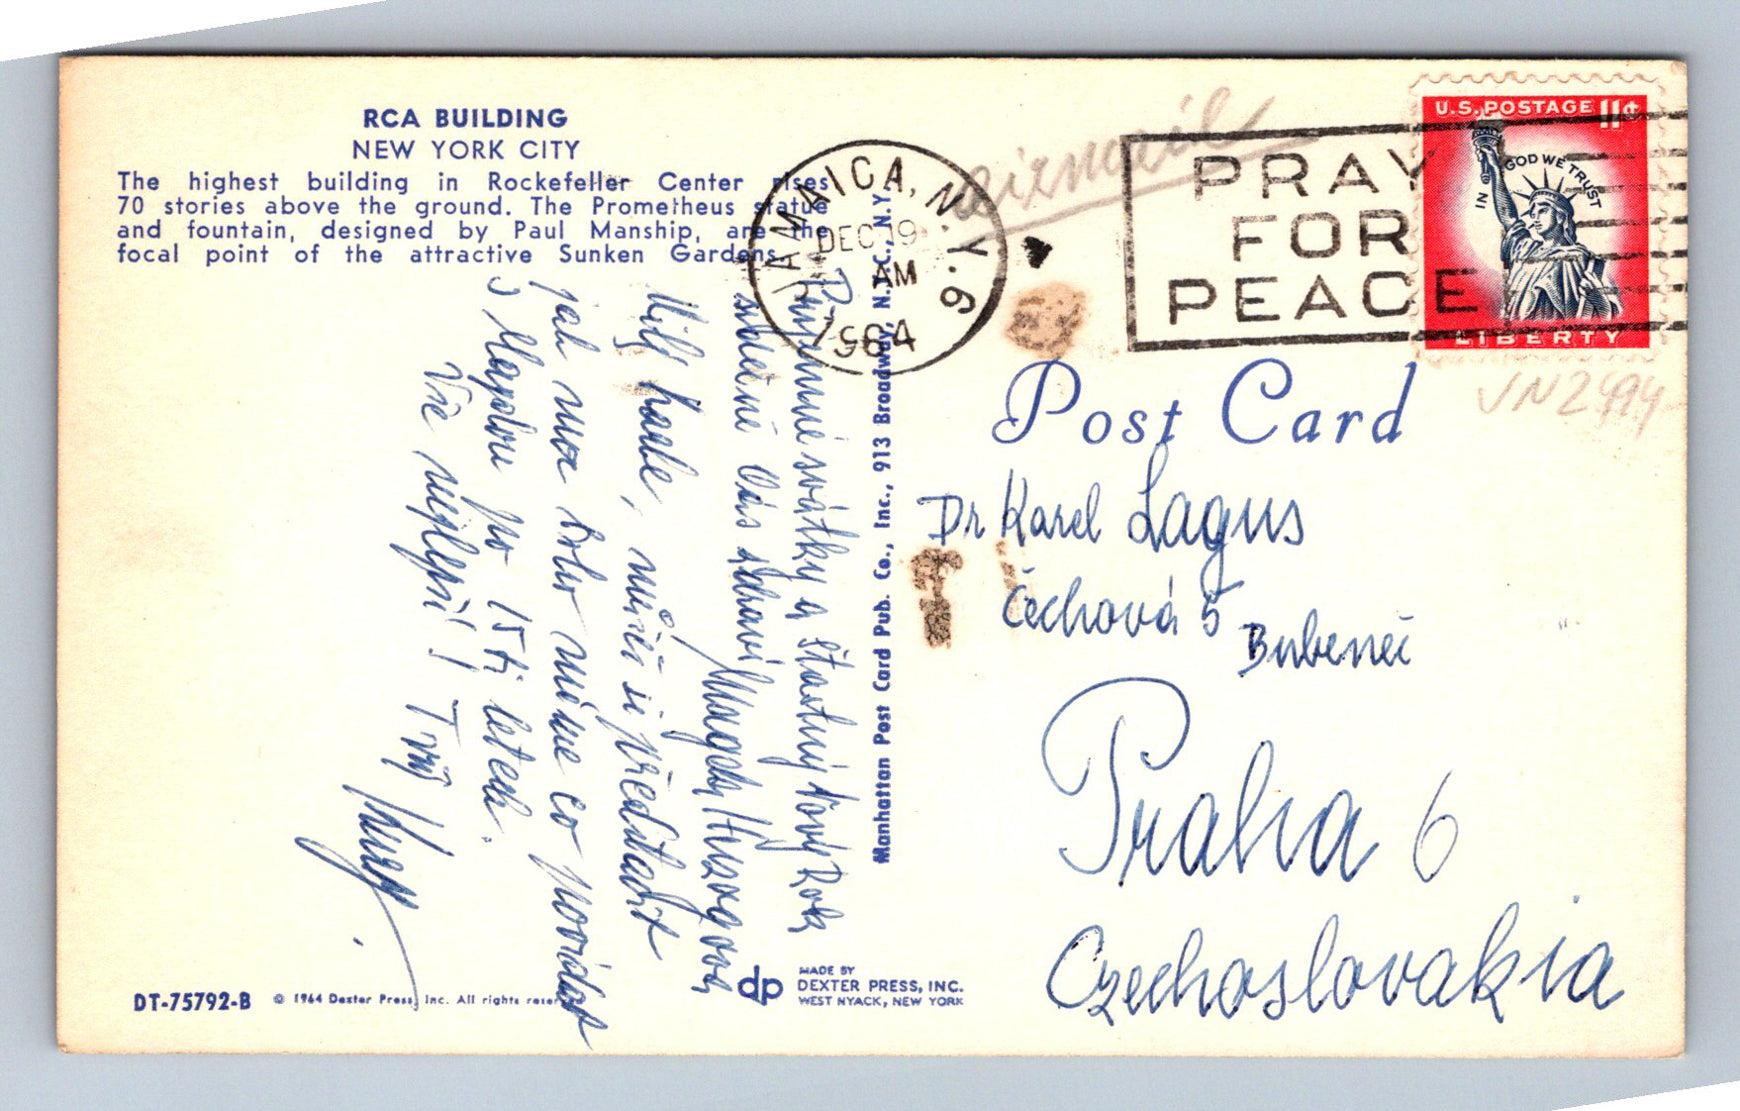 RCA BUILDING
NEW YORK CITY
The highest building in Rockefeller Center rises
70 stories above the ground. The Prometheus statue
and fountain, designed by Paul Manship, are the
focal point of the attractive Sunken Gardens.
JAMAICA, N.Y. 6
DEC 19
AM
1964
PRAY
FOR
PEACE
U.S. POSTAGE 11¢
IN GOD WE TRUST
LIBERTY
VN2494
Post Card
Dr Karel Lagus
Čechová 5
Bubeneč
Praha 6
Czechoslovakia
Příjemné svátky a šťastný Nový Rok
srdečně Vás zdraví Magda
Milý Karle, můžeš si představit
jak moc toho máme co povídat
s Magdou po 15ti letech.
Vše nejlepší! Tvůj
Manhattan Post Card Pub. Co., Inc., 913 Broadway, N.Y.C., N.Y.
DT-75792-B © 1964 Dexter Press, Inc. All rights reser
dp
MADE BY
DEXTER PRESS, INC.
WEST NYACK, NEW YORK